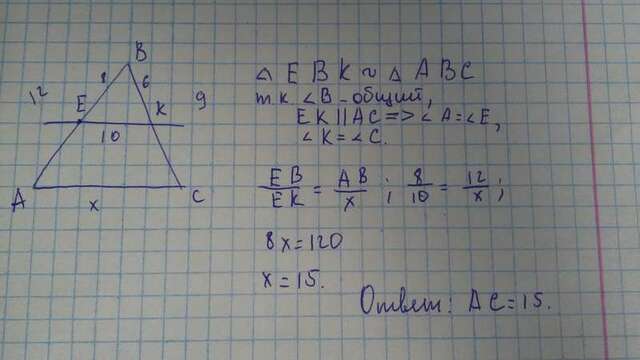 B
8 6
12 9
E K
10
A C
x
△ EBK ~ △ ABC
т.к. ∠B - общий,
EK || AC => ∠A = ∠E,
∠K = ∠C.
EB/EK = AB/x ; 8/10 = 12/x ;
8x = 120
x = 15.
Ответ: AC = 15.